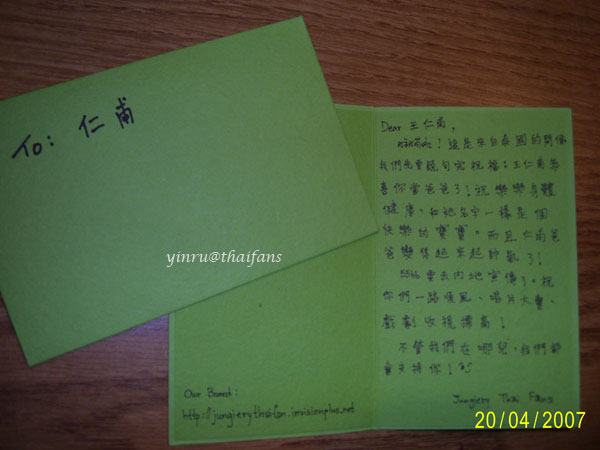 To: 仁甫
yinru@thaifans
Dear 王仁甫,
สวัสดีค่ะ! 這是來自泰國的問候
我們先要說句完祝福: 王仁甫恭
喜你當爸爸了! 祝樂樂身體
健康、和她名字一樣是個
快樂的寶寶。而且仁甫爸
爸變得起來起帥氣了!
5566要去內地宣傳了。祝
你們一路順風、唱片大賣、
戲劇收視摽高!
不管我們在哪兒,我們都
會支持你!
Jungiery Thai Fans
Our Board:
http://jungierythaifan.invisionplus.net
20/04/2007